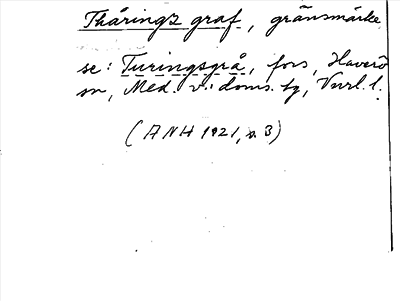 Thårings graf, gränsmärke
se: Turingsgrå, fors, Haverö
sn, Med. v. doms. tg, Vnrl. l.
(ANH 1921, s. 3)